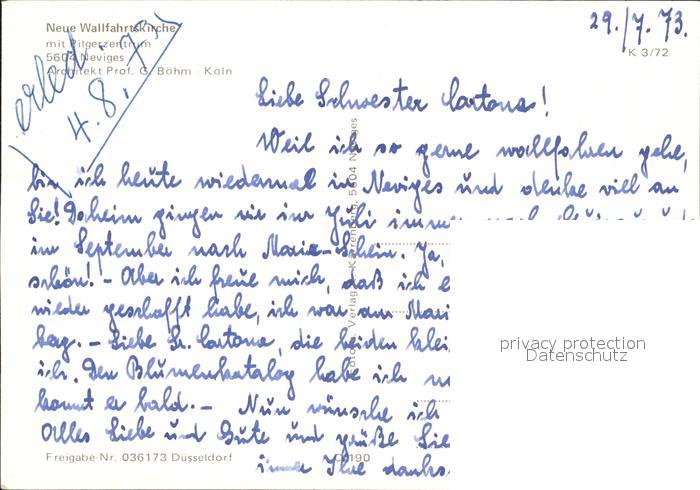 29./7. 73.
Neue Wallfahrtskirche
mit Pilgerzentrum
5604 Neviges
Architekt Prof. G. Böhm · Köln
K 3/72
erled.
4.8.73
Liebe Schwester Cartona!
Weil ich so gerne wallfahren gehe,
bin ich heute wiedermal in Neviges und denke viel an
Sie! Daheim gingen wir im Juli immer nach
im September nach Maria-Schein. Ja,
schön! - Aber ich freue mich, daß ich e
wieder geschafft habe, ich war am Mari
berg. - Liebe Sr. Cartona, die beiden klei
ich. Den Blumenkatalog habe ich
kommt er bald. - Nun wünsche ich
Alles Liebe und Gute und grüße Sie
immer Ihre danks
Verlag Kattenberg, 5604 Neviges
privacy protection
Datenschutz
Freigabe-Nr. 036173 Düsseldorf
190